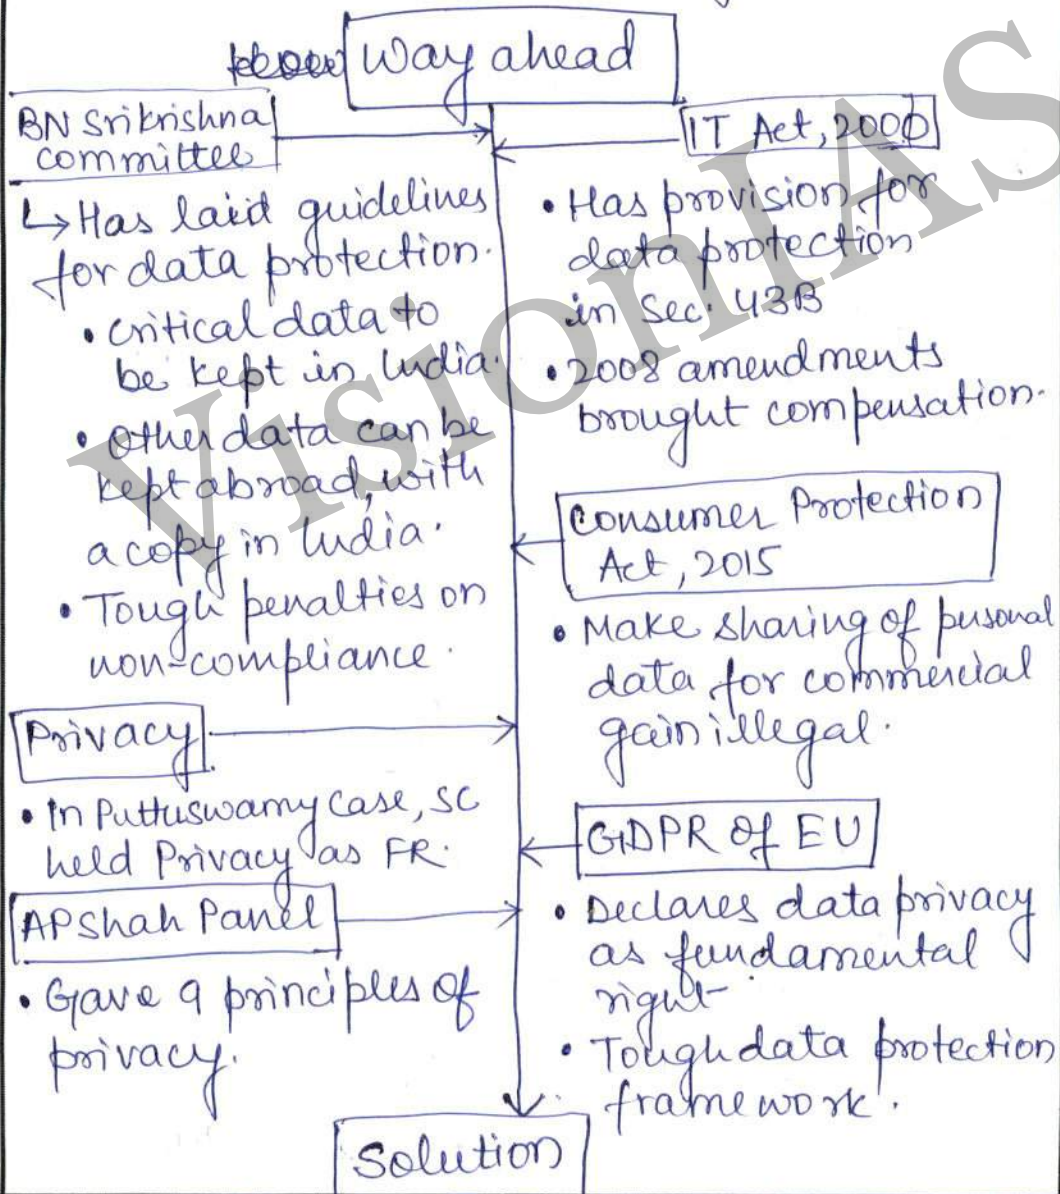 Way ahead
BN Srikrishna
committee
↳ Has laid guidelines
for data protection.
• Critical data to
be kept in India.
• Other data can be
kept abroad, with
a copy in India.
• Tough penalties on
non-compliance.
Privacy
• In Puttuswamy case, SC
held Privacy as FR.
AP Shah Panel
• Gave 9 principles of
privacy.
IT Act, 2000
• Has provision for
data protection
in Sec. 43B
• 2008 amendments
brought compensation.
Consumer Protection
Act, 2015
• Make sharing of personal
data for commercial
gain illegal.
GDPR of EU
• Declares data privacy
as fundamental
right
• Tough data protection
framework.
Solution
VisionIAS